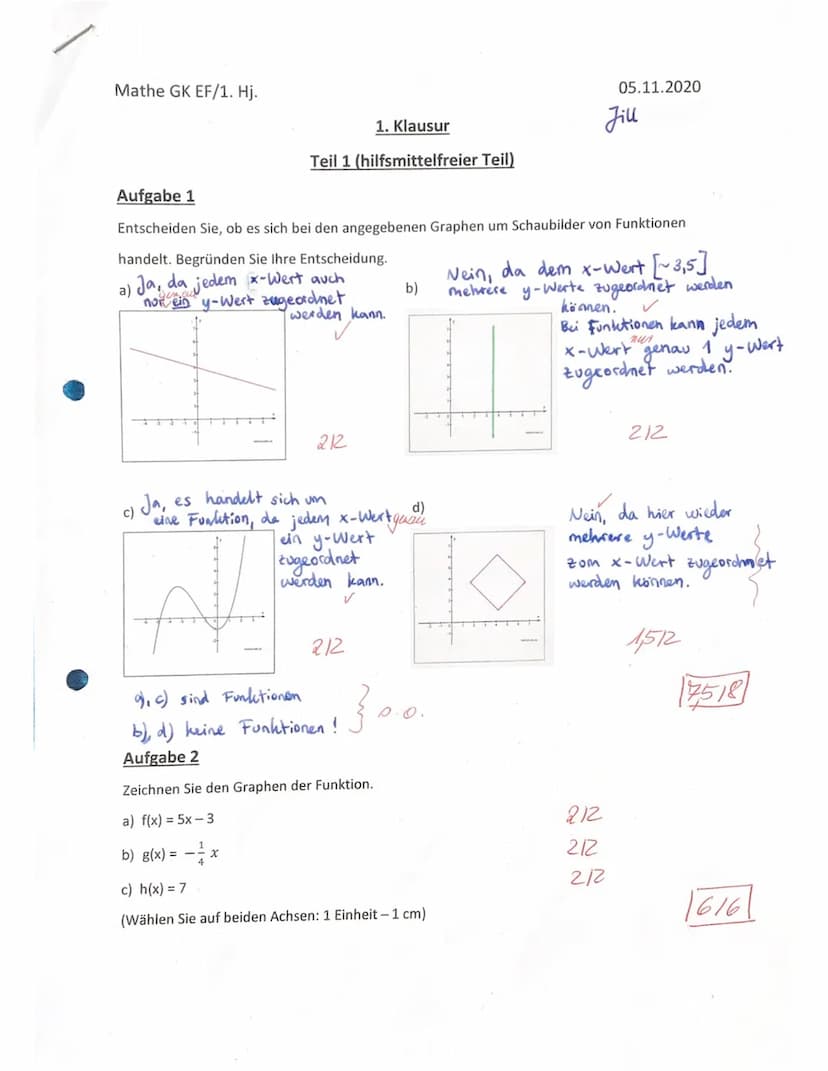 Mathe GK EF/1. Hj.
05.11.2020
Jill
1. Klausur
Teil 1 (hilfsmittelfreier Teil)
Aufgabe 1
Entscheiden Sie, ob es sich bei den angegebenen Graphen um Schaubilder von Funktionen
handelt. Begründen Sie Ihre Entscheidung.
a) Ja, da jedem x-Wert auch
genau
nur ein y-Wert zugeordnet
werden kann.
2/2
b)
Nein, da dem x-Wert [~3,5]
mehrere y-Werte zugeordnet werden
können.
Bei Funktionen kann jedem
nur
x-Wert genau 1 y-Wert
zugeordnet werden.
2/2
c) Ja, es handelt sich um
eine Funktion, da jedem x-Wert genau
ein y-Wert
zugeordnet
werden kann.
2/2
d)
Nein, da hier wieder
mehrere y-Werte
zum x-Wert zugeordnet
werden können.
1,5/2
7,5/8
a), c) sind Funktionen
b), d) keine Funktionen! } s.o.
Aufgabe 2
Zeichnen Sie den Graphen der Funktion.
a) f(x) = 5x – 3
2/2
b) g(x) = −1/4 x
2/2
c) h(x) = 7
2/2
(Wählen Sie auf beiden Achsen: 1 Einheit – 1 cm)
6/6